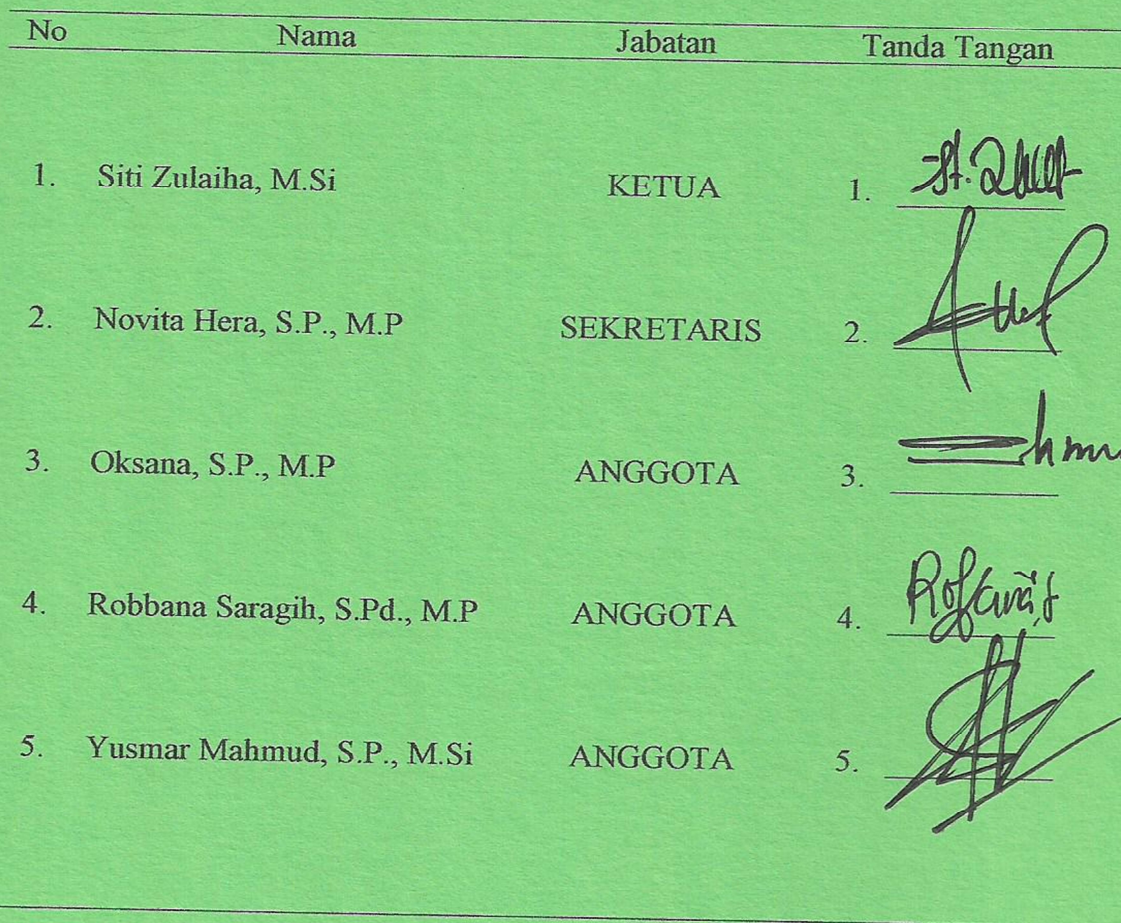 No Nama Jabatan Tanda Tangan
1. Siti Zulaiha, M.Si KETUA 1.
2. Novita Hera, S.P., M.P SEKRETARIS 2.
3. Oksana, S.P., M.P ANGGOTA 3.
4. Robbana Saragih, S.Pd., M.P ANGGOTA 4.
5. Yusmar Mahmud, S.P., M.Si ANGGOTA 5.